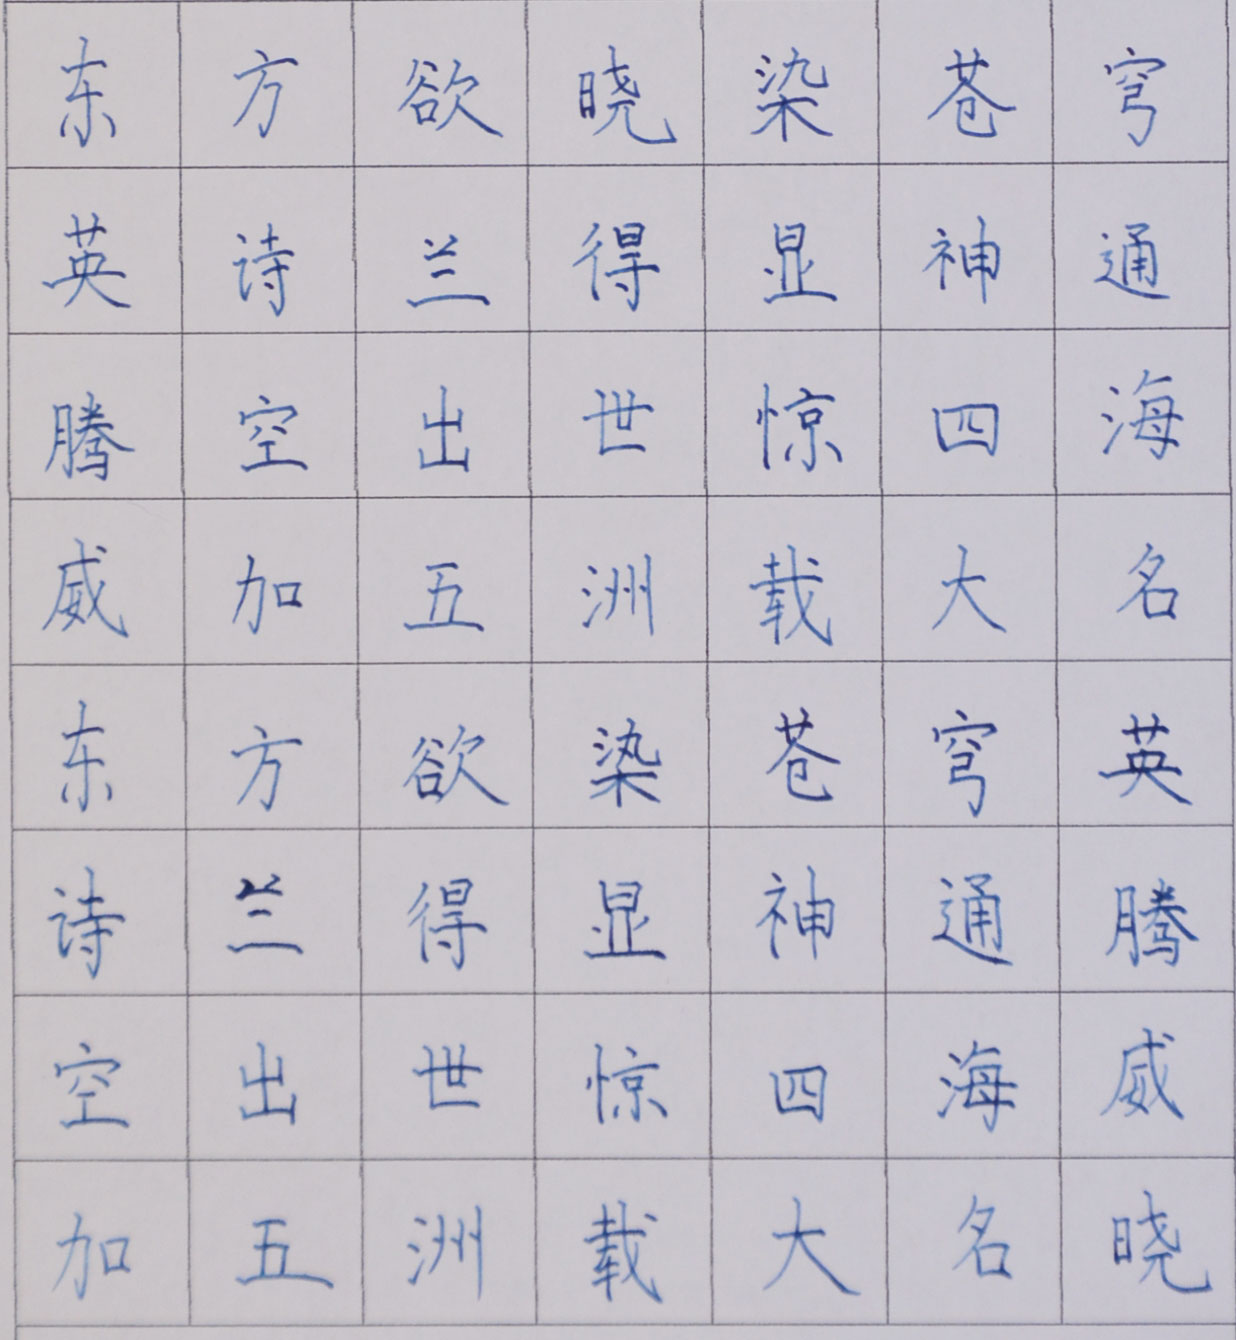 东方欲晓染苍穹
英诗兰得显神通
腾空出世惊四海
威加五洲载大名
东方欲染苍穹英
诗兰得显神通腾
空出世惊四海威
加五洲载大名晓